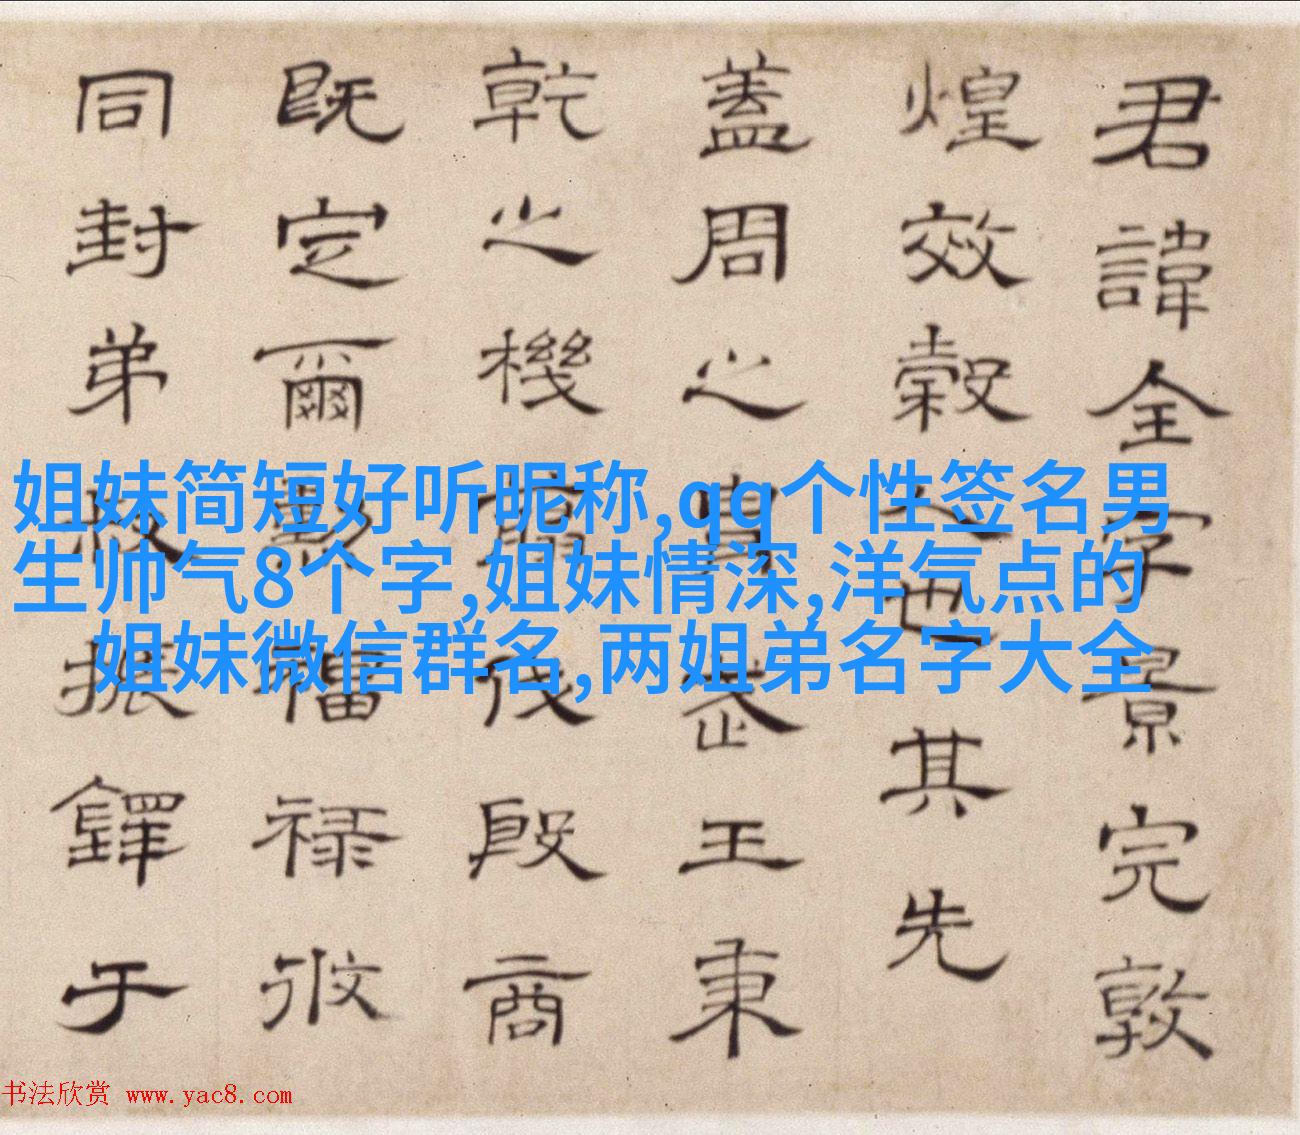 君諱全字景完敦
煌效穀人也其先
蓋周之胄武王秉
乾之機翦伐殷商
既定爾勳福祿攸
同封弟叔振鐸于
姐妹简短好听昵称,qq个性签名男
生帅气8个字,姐妹情深,洋气点的
姐妹微信群名,两姐弟名字大全
书法欣赏 www.yac8.com